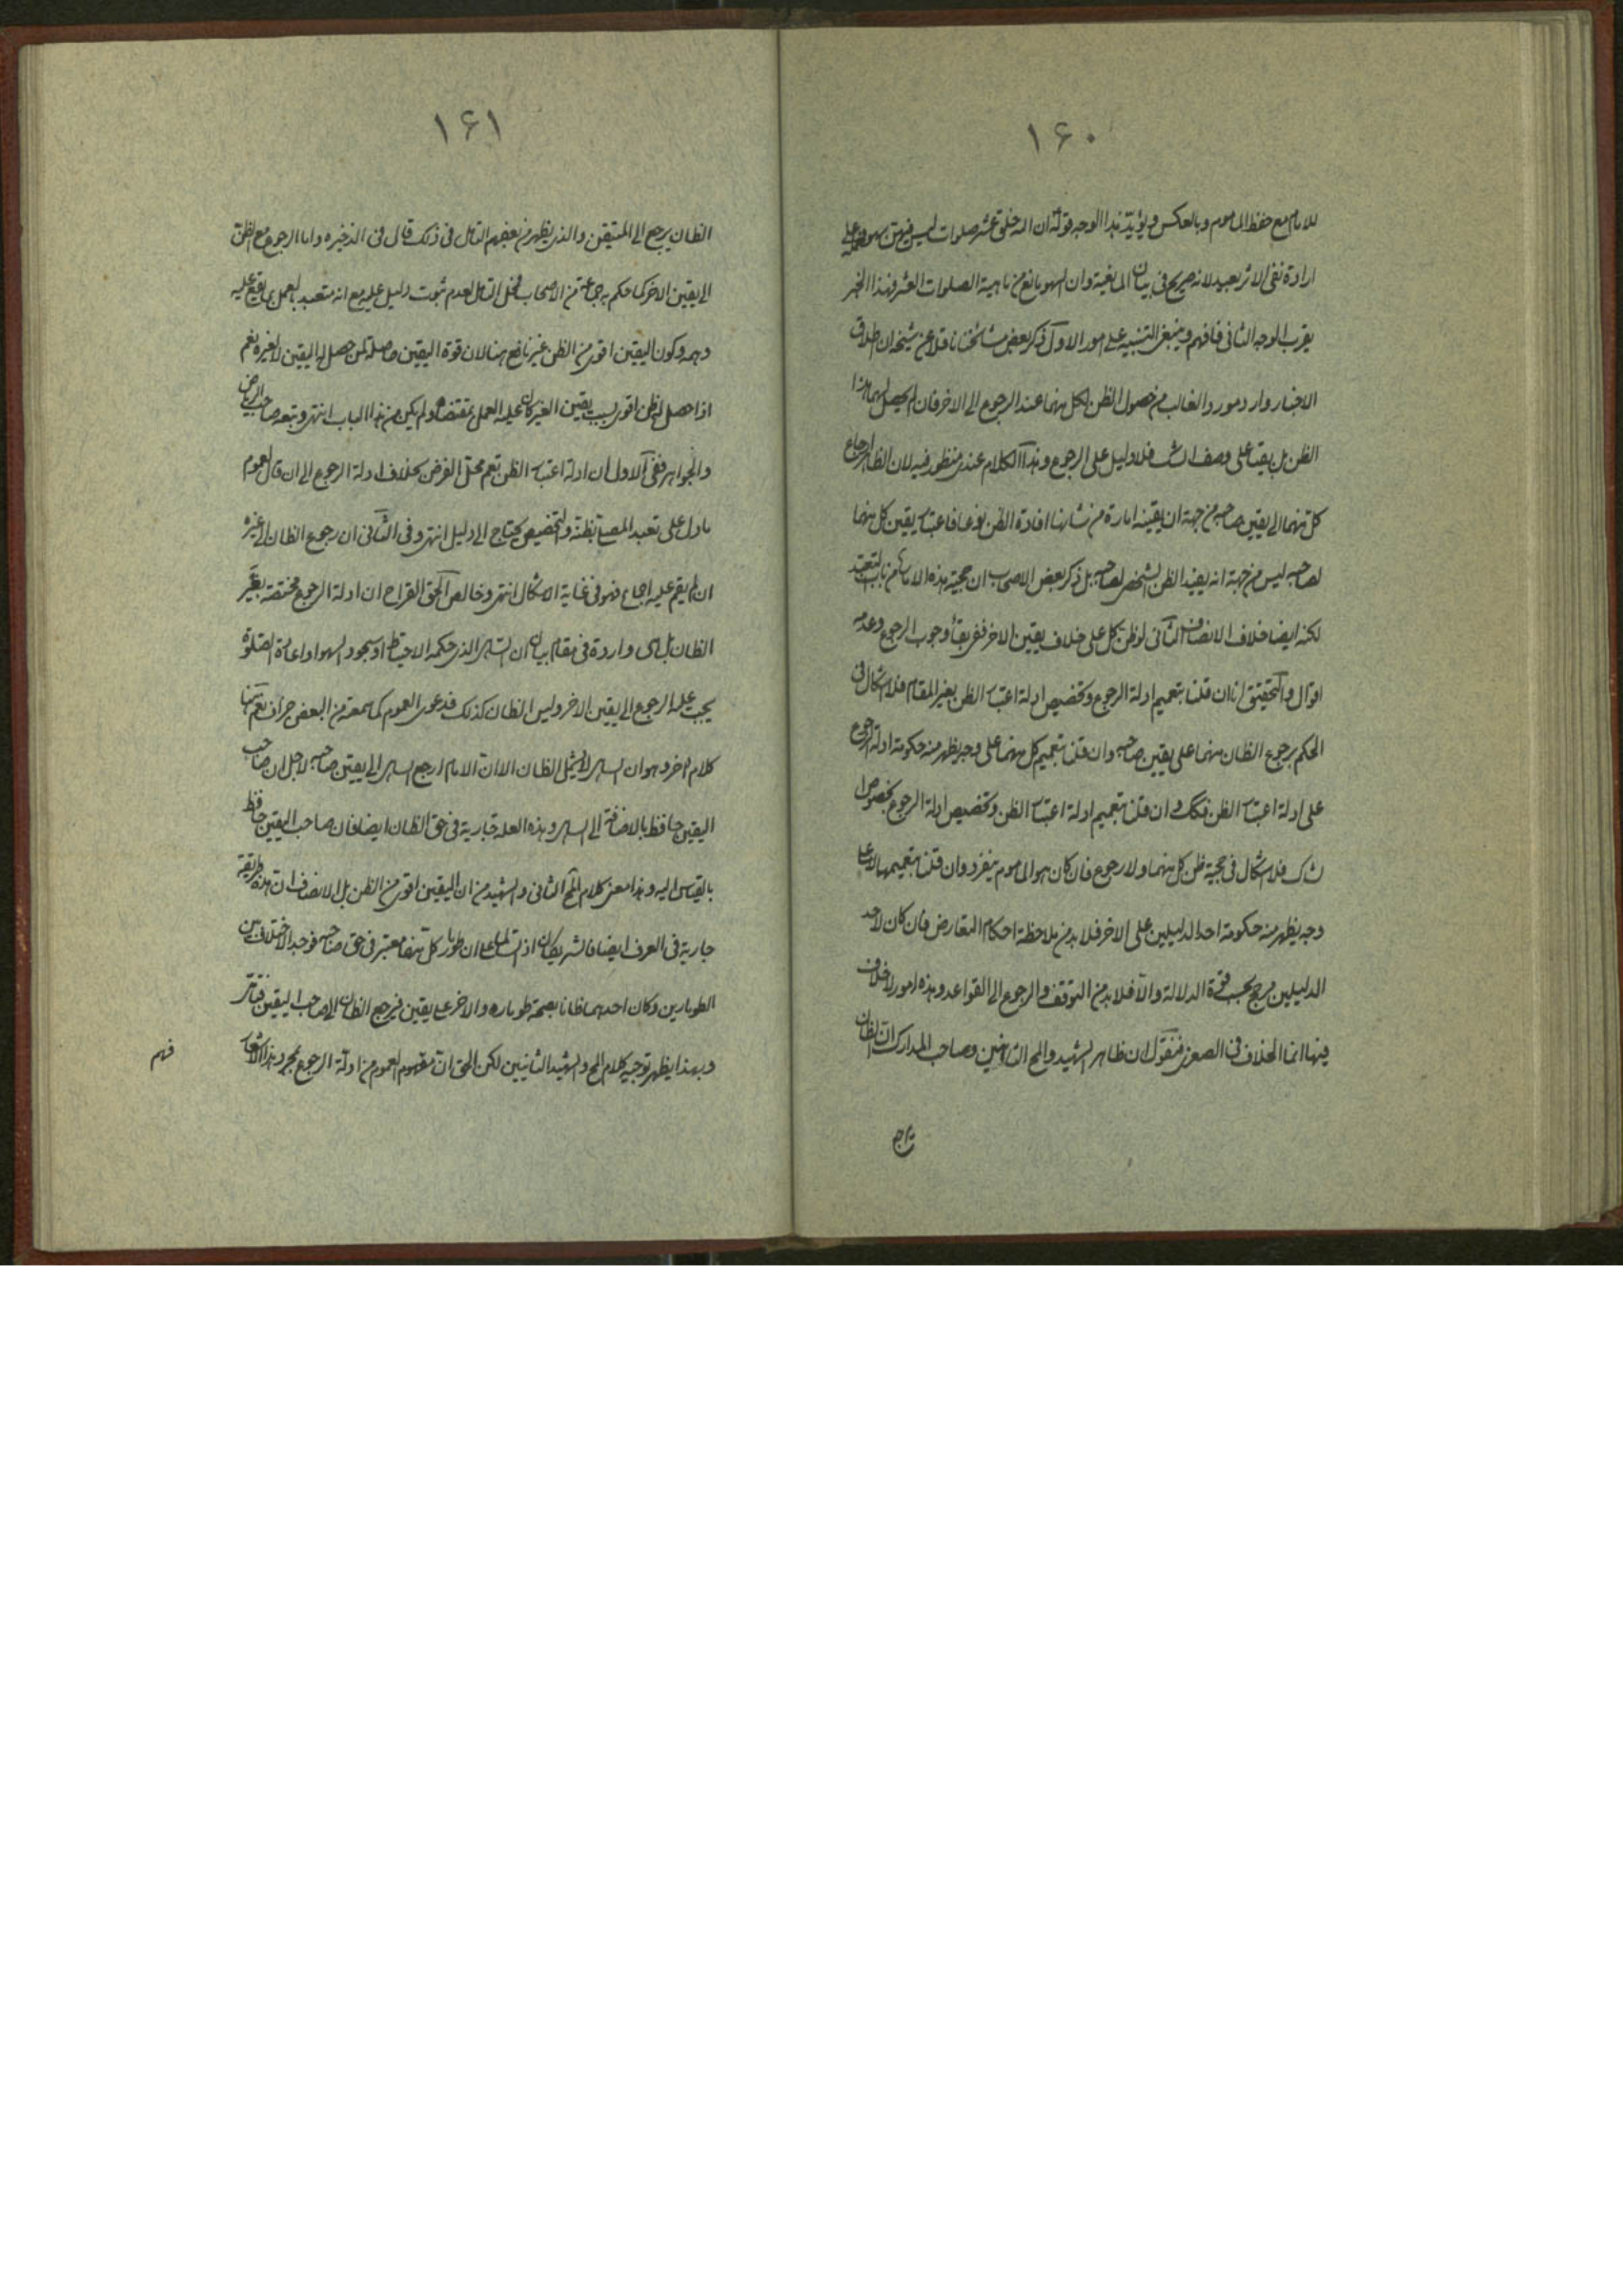 ١۶٠
للامام مع حفظ الماموم وبالعكس ويؤيد هذا الوجه قوله ان الله خلق عشر صلوات ليس فيهن سهو فحمله على
ارادة نفى الاثر بعيد لانه صريح فى بيان المانعية وان السهو مانع من ماهية الصلوات العشر فهذا الخبر
يقرب الوجه الثانى فافهم وينبغى التنبيه على امور الاول ذكر بعض مشائخنا ناقلا عن شيخه ان اطلاق
الاخبار وارد مورد الغالب من حصول الظن لكل منهما عند الرجوع الى الاخر فان لم يحصل لهما هذا
الظن بل بقيا على وصف الشك فلا دليل على الرجوع وهذا الكلام عندى منظور فيه لان الظاهر ارجاع
كل منهما الى يقين صاحبه من جهة ان يقينه امارة من شانها افادة الظن نوعا فاعتبار يقين كل منهما
لصاحبه ليس من جهة انه يفيد الظن الشخصى لصاحبه بل ذكر بعض الاصحاب ان حجية هذه الامارة من باب التعبد
لكنه ايضا خلاف الانصاف الثانى لو ظن كل على خلاف يقين الاخر ففى بقاء وجوب الرجوع وعدمه
اقوال والتحقيق انا ان قلنا بتعميم ادلة الرجوع وتخصيص ادلة اعتبار الظن بغير المقام فلا اشكال فى
الحكم برجوع الظان منهما على يقين صاحبه وان قلنا بتعميم كل منهما على وجه يظهر منه حكومة ادلة الرجوع
على ادلة اعتبار الظن فكك وان قلنا بتعميم ادلة اعتبار الظن وتخصيص ادلة الرجوع بخصوص
شك فلا اشكال فى حجية ظن كل منهما ولا رجوع فان كان هو الماموم ينفرد وان قلنا بتعميمهما لا على
وجه يظهر منه حكومة احد الدليلين على الاخر فلا بد من ملاحظة احكام التعارض فان كان لاحد
الدليلين مرجح بحسب قوة الدلالة والا فلا بد من التوقف والرجوع الى القواعد وهذه امور لا خلاف
فيها انما الخلاف فى الصغرى فنقول ان ظاهر الشهيد والمحقق الثانيين وصاحب المدارك ان الظان
١۶١
الظان يرجع الى المتيقن والذى يظهر من بعضهم التامل فى ذلك قال فى الذخيره واما الرجوع مع الظن
الى يقين الاخر كما حكم به جماعة من الاصحاب فمحل التامل لعدم ثبوت دليل عليه مع انه متعبد بالعمل بما يقع عليه
وهمه وكون اليقين اقوى من الظن غير نافع هنا لان قوة اليقين حاصلة لمن حصل له اليقين لا لغيره نعم
اذا حصل له ظن اقوى بسبب يقين الغير كان عليه العمل بمقتضاه ولم يكن من هذا الباب انتهى وتبعه صاحب الرياض
والجواهر ففى الاول ان ادلة اعتبار الظن تعم محل الفرض بخلاف ادلة الرجوع الى ان قال لعموم
ما دل على تعبد المصلى بظنه والتخصيص يحتاج الى دليل انتهى وفى الثانى ان رجوع الظان الى غيره
ان لم يقم عليه اجماع فهو فى غاية الاشكال انتهى وخالص الحق القراح ان ادلة الرجوع مختصة بغير
الظان بل هى واردة فى مقام بيان ان الساهى الذى حكمه الاحتياط او سجود السهو او اعادة الصلوة
يجب عليه الرجوع الى يقين الاخر وليس الظان كذلك فدعوى العموم كما سمعته من البعض جزاف نعم هنا
كلام اخر وهو ان الساهى لا يشمل الظان الا ان الامام ارجع الساهى الى يقين صاحبه لاجل ان صاحب
اليقين حافظ بالاضافة الى الساهى وهذه العلة جارية فى حق الظان ايضا فان صاحب اليقين حافظ
بالقياس اليه وهذا معنى كلام المحقق الثانى والشهيد من ان اليقين اقوى من الظن بل الانصاف ان هذه طريقة
جارية فى العرف ايضا فالشريكان اذا تسالما على ان طومار كل منهما معتبر فى حق صاحبه فوجد الاختلاف بين
الطومارين وكان احدهما ظانا بصحة طوماره والاخر على يقين فيرجع الظان الى صاحب اليقين
وبهذا يظهر توجيه كلام المحقق والشهيد الثانيين لكن الحق ان مفهوم العموم من ادلة الرجوع بمجرد هذا الاشعار
فهم